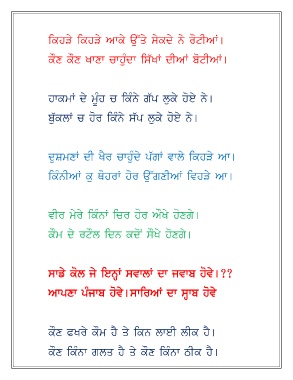 ਕਿਹੜੇ ਕਿਹੜੇ ਆਕੇ ਉੱਤੇ ਸੇਕਦੇ ਨੇ ਰੋਟੀਆਂ।
ਕੌਣ ਕੌਣ ਖਾਣਾ ਚਾਹੁੰਦਾ ਸਿੱਖਾਂ ਦੀਆਂ ਬੋਟੀਆਂ।
ਹਾਕਮਾਂ ਦੇ ਮੂੰਹ ਚ ਕਿੰਨੇ ਗੱਪ ਲੁਕੇ ਹੋਏ ਨੇ।
ਬੁੱਕਲਾਂ ਚ ਹੋਰ ਕਿੰਨੇ ਸੱਪ ਲੁਕੇ ਹੋਏ ਨੇ।
ਦੁਸ਼ਮਣਾਂ ਦੀ ਖੈਰ ਚਾਹੁੰਦੇ ਪੱਗਾਂ ਵਾਲੇ ਕਿਹੜੇ ਆ।
ਕਿੰਨੀਆਂ ਕੁ ਥੋਹਰਾਂ ਹੋਰ ਉੱਗਣੀਆਂ ਵਿਹੜੇ ਆ।
ਵੀਰ ਮੇਰੇ ਕਿੰਨਾਂ ਚਿਰ ਹੋਰ ਔਖੇ ਹੋਣਗੇ।
ਕੌਮ ਦੇ ਰਟੌਲ ਦਿਨ ਕਦੋਂ ਸੌਖੇ ਹੋਣਗੇ।
ਸਾਡੇ ਕੋਲ ਜੇ ਇਨ੍ਹਾਂ ਸਵਾਲਾਂ ਦਾ ਜਵਾਬ ਹੋਵੇ।??
ਆਪਣਾ ਪੰਜਾਬ ਹੋਵੇ।ਸਾਰਿਆਂ ਦਾ ਸ੍ਵਾਬ ਹੋਵੇ
ਕੌਣ ਫਖਰੇ ਕੌਮ ਹੈ ਤੇ ਕਿਨ ਲਾਈ ਲੀਕ ਹੈ।
ਕੌਣ ਕਿੰਨਾ ਗਲਤ ਹੈ ਤੇ ਕੌਣ ਕਿੰਨਾ ਠੀਕ ਹੈ।